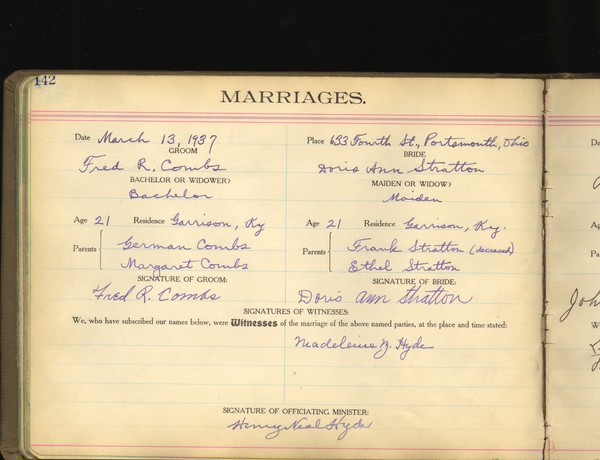 142
MARRIAGES.
Date March 13, 1937 Place 633 Fourth St., Portsmouth, Ohio
GROOM BRIDE
Fred R. Combs Doris Ann Stratton
BACHELOR OR WIDOWER? MAIDEN OR WIDOW?
Bachelor Maiden
Age 21 Residence Garrison, Ky Age 21 Residence Garrison, Ky.
Parents German Combs Parents Frank Stratton (deceased)
Margaret Combs Ethel Stratton
SIGNATURE OF GROOM: SIGNATURE OF BRIDE:
Fred R. Combs Doris Ann Stratton
SIGNATURES OF WITNESSES:
We, who have subscribed our names below, were Witnesses of the marriage of the above named parties, at the place and time stated:
Madeleine Hyde
SIGNATURE OF OFFICIATING MINISTER:
Henry Neal Hyde